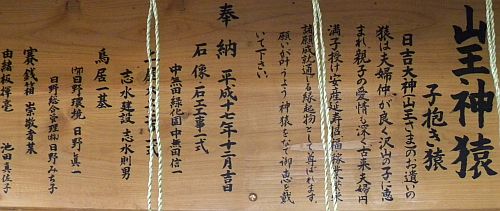 山王・神猿
子抱き猿
日吉大神（山王さま）のお遣いの
猿は夫婦仲が良く沢山の子に恵
まれ親子の愛情も深く古来夫婦円
満子授け安産延寿厄
諸願成就に通じる縁起物として尊ばれます
願いが叶うよう神猿をなで御恵を戴
いて下さい。
奉納 平成十七年十二月吉日
石像一石工事一式
中無田緑化園 中無田信一
志水建設 志水則男
鳥居一基
㈲日野環境 日野真一
日野総合管理㈱ 日野みち子
賽銭箱 崇敬者某
由緒板揮毫 池田真佐子